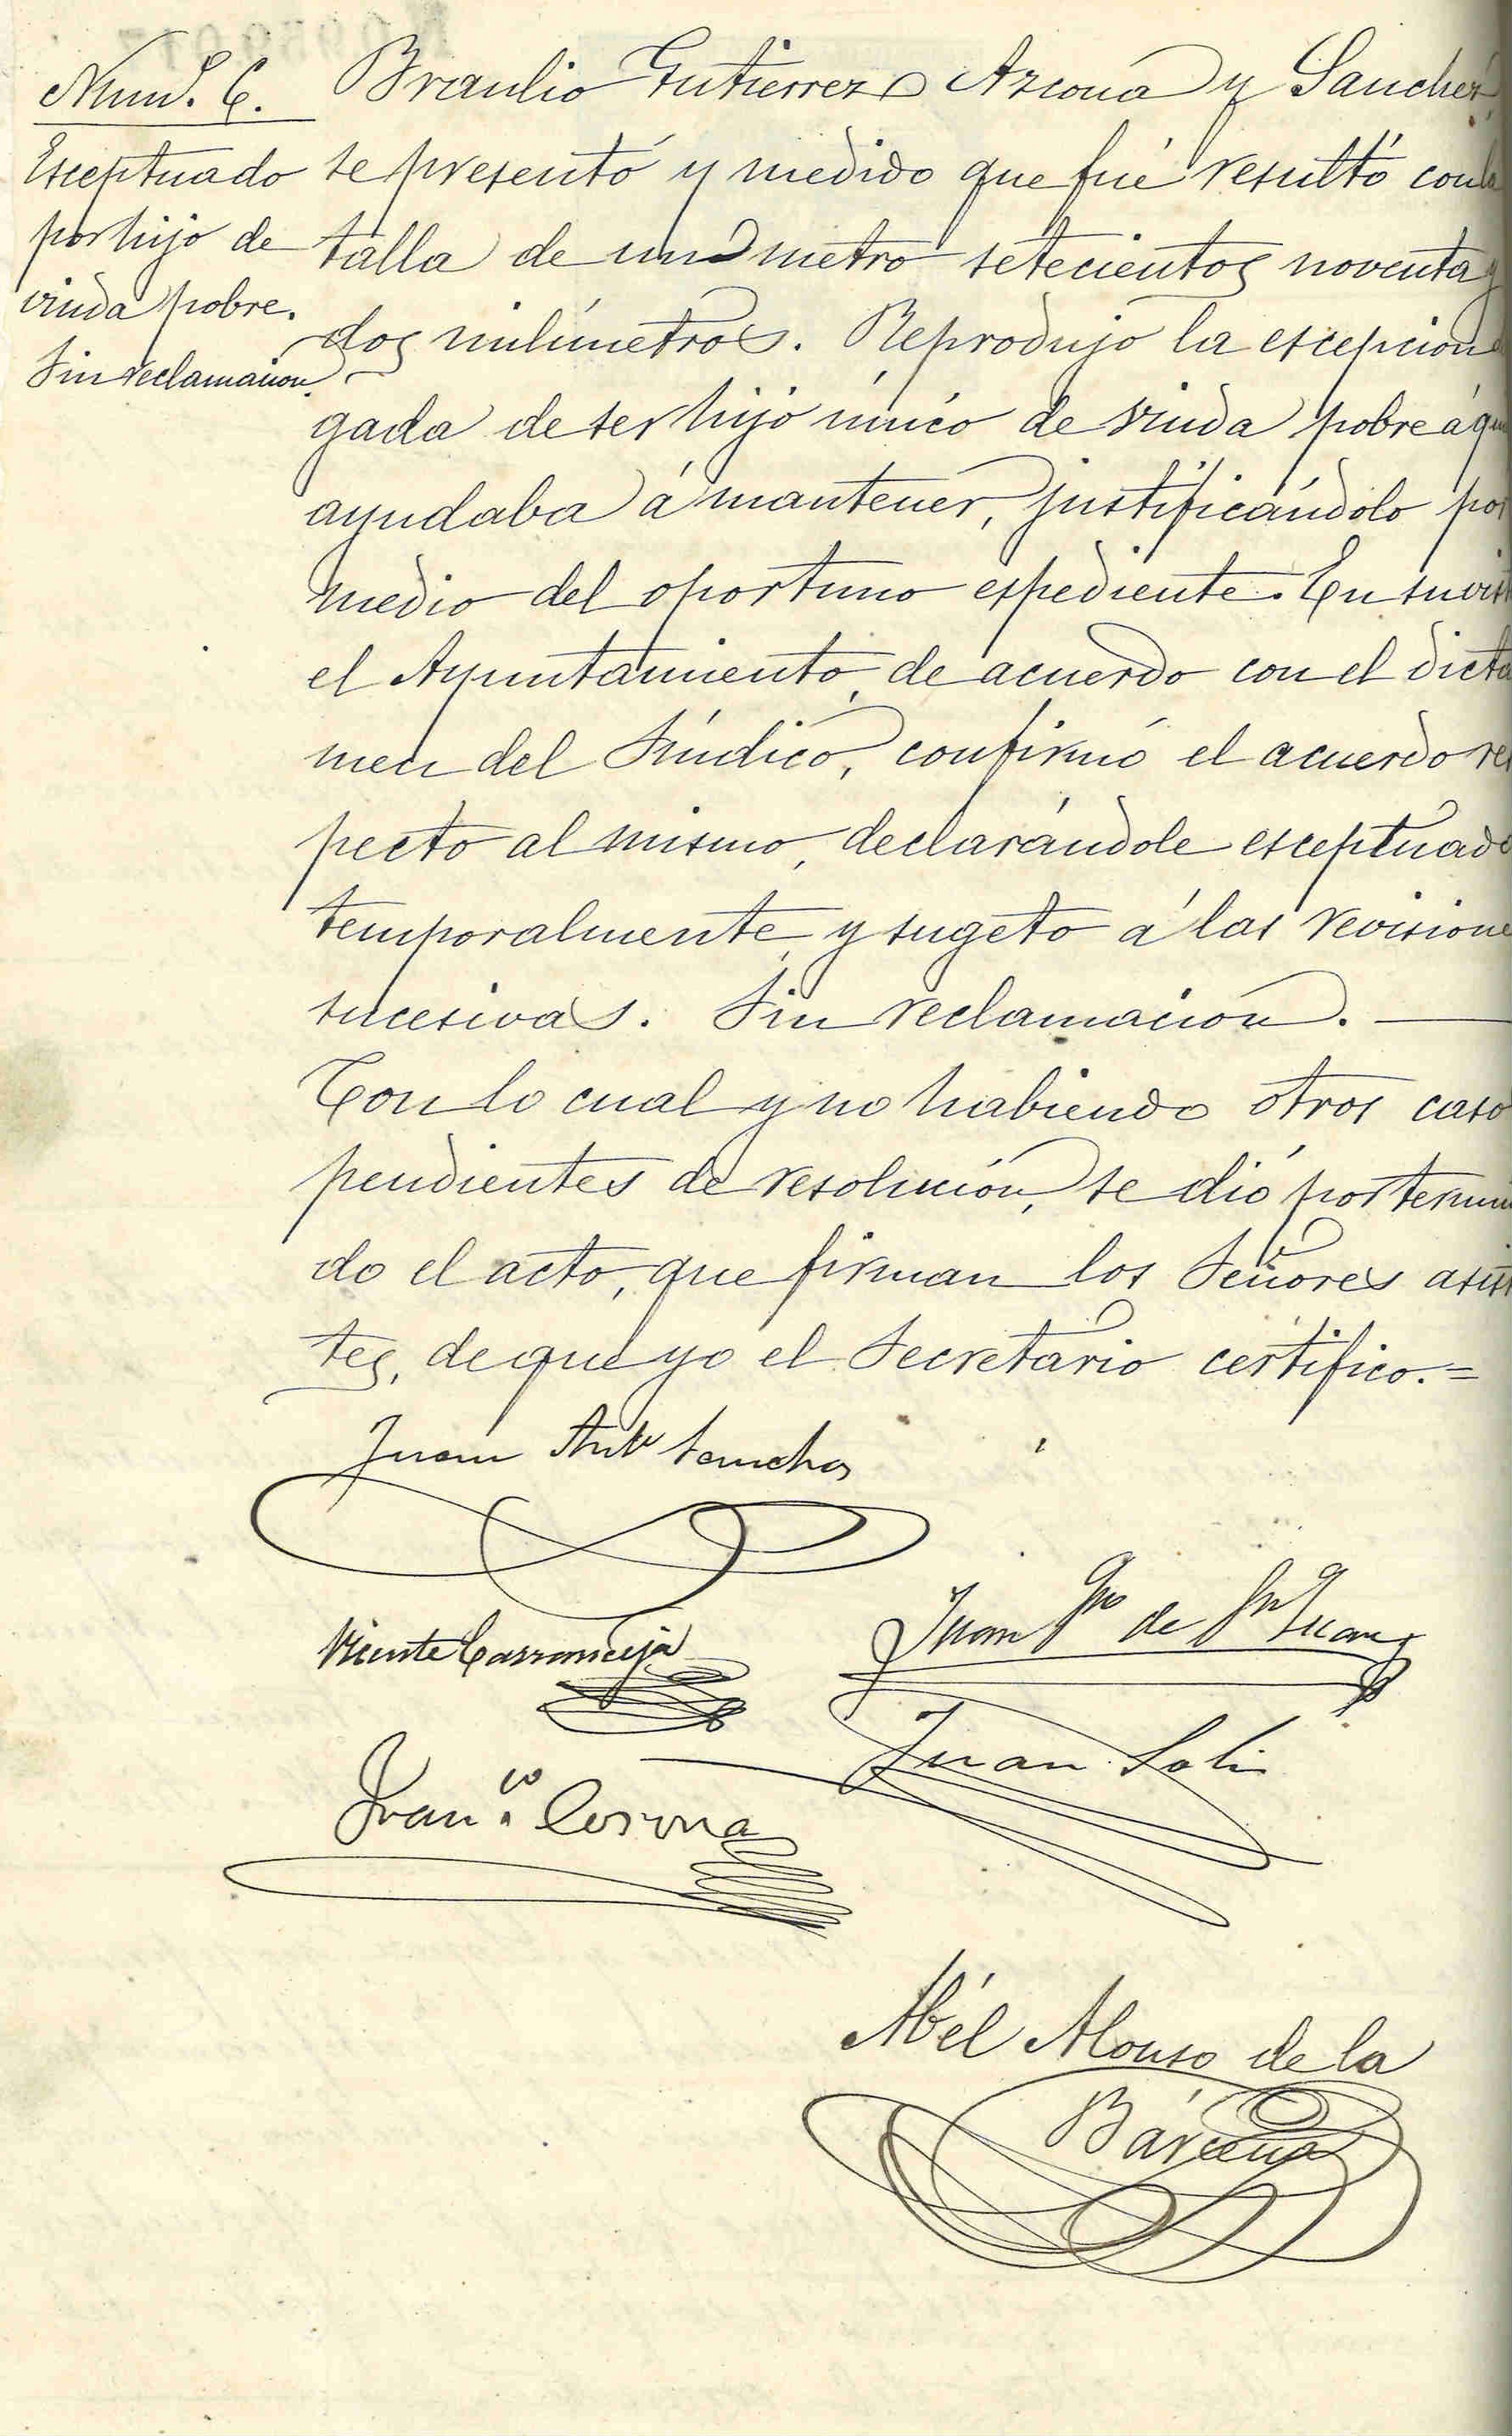 Num. 6.
Esceptuado
por hijo de
viuda pobre.
Sin reclamacion.
Braulio Gutierrez Azcona y Sanchez
se presentó y medido que fué resultó con la
talla de un metro setecientos noventa y
dos milímetros. Reprodujo la escepcion
gada de ser hijo único de viuda pobre á
ayudaba á mantener, justificándolo por
medio del oportuno espediente. En su vist
el Ayuntamiento, de acuerdo con el dicta
men del Síndico, confirmó el acuerdo res
pecto al mismo, declarándole esceptuado
temporalmente, y sugeto á las revisione
sucesivas. Sin reclamacion.
Con lo cual y no habiendo otros caso
pendientes de resolución, se dió por termin
do el acto, que firman los Señores asis
tes, de que yo el Secretario certifico.=
Juan Antº Sanchez
Vicente
Juan de Sn Juan
Juan Solis
Franco. Corona
Abél Alonso de la
Bárcena